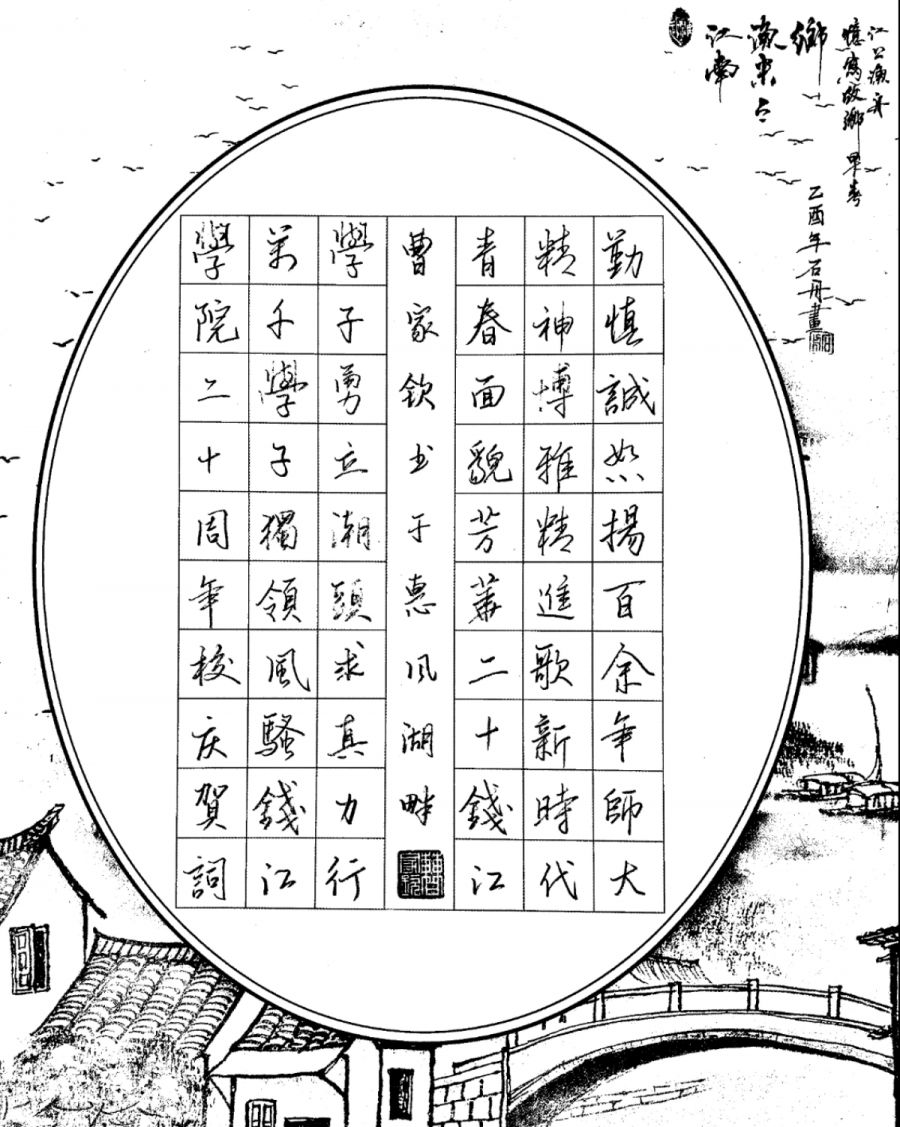 江公漁舟
憶寫故鄉早春
乙酉年石丹畫
鄉
漁家
江南
勤慎誠恕揚百余年師大
精神博雅精進歌新時代
青春面貌芳華二十錢江
曹家欽书于惠风湖畔
學子勇立潮頭求真力行
萬千學子獨領風騷錢江
學院二十周年校庆賀詞